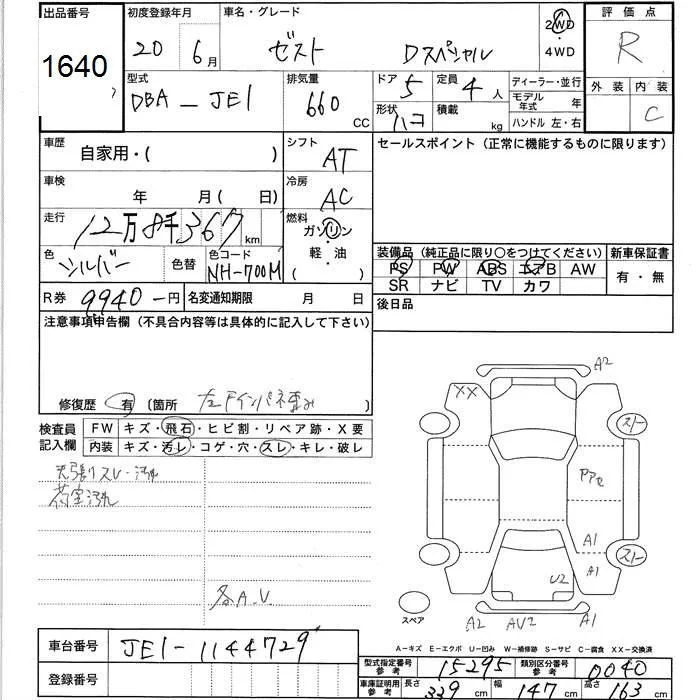 出品番号 初度登録年月 車名・グレード 評価点
1640 20年 6月 ゼスト Dスペシャル 2WD ・ 4WD R
型式 排気量 ドア 定員 ディーラー・並行 外装 内装
DBA - JE1 660 CC 5 4人 モデル年式 年 C
形状 ハコ 積載 kg ハンドル 左・右
車歴 自家用・( ) シフト AT セールスポイント (正常に機能するものに限ります)
車検 年 月( 日) 冷房 AC
走行 12万8千367km 燃料 ガソリン ・ 軽・油 ( )
色 シルバー 色替 色コード NH-700M
装備品 (純正品に限り○をつけてください) 新車保証書
PS PW ABS エアB AW 有・無
SR ナビ TV カワ
R券 9940-円 名変通知期限 月 日 後日品
注意事項申告欄 (不具合内容等は具体的に記入して下さい)
修復歴 有 (箇所 左Fインパネ歪み )
検査員記入欄 FW キズ・飛石・ヒビ割・リペア跡・X要
内装 キズ・汚レ・コゲ・穴・スレ・キレ・破レ
天張りスレ・汚れ
荷室汚れ
各A.V.
A2
XX
スト
A1
スト
A1
U2
スペア
A2 AV2 A1
A-キズ E-エクボ U-凹み W-補修跡 S-サビ C-腐食 XX-交換済
車台番号 JE1-1144729
登録番号
型式指定番号 参考 15295 類別区分番号 参考 0040
車庫証明用 参考 長さ 339cm 幅 147cm 高さ 163cm